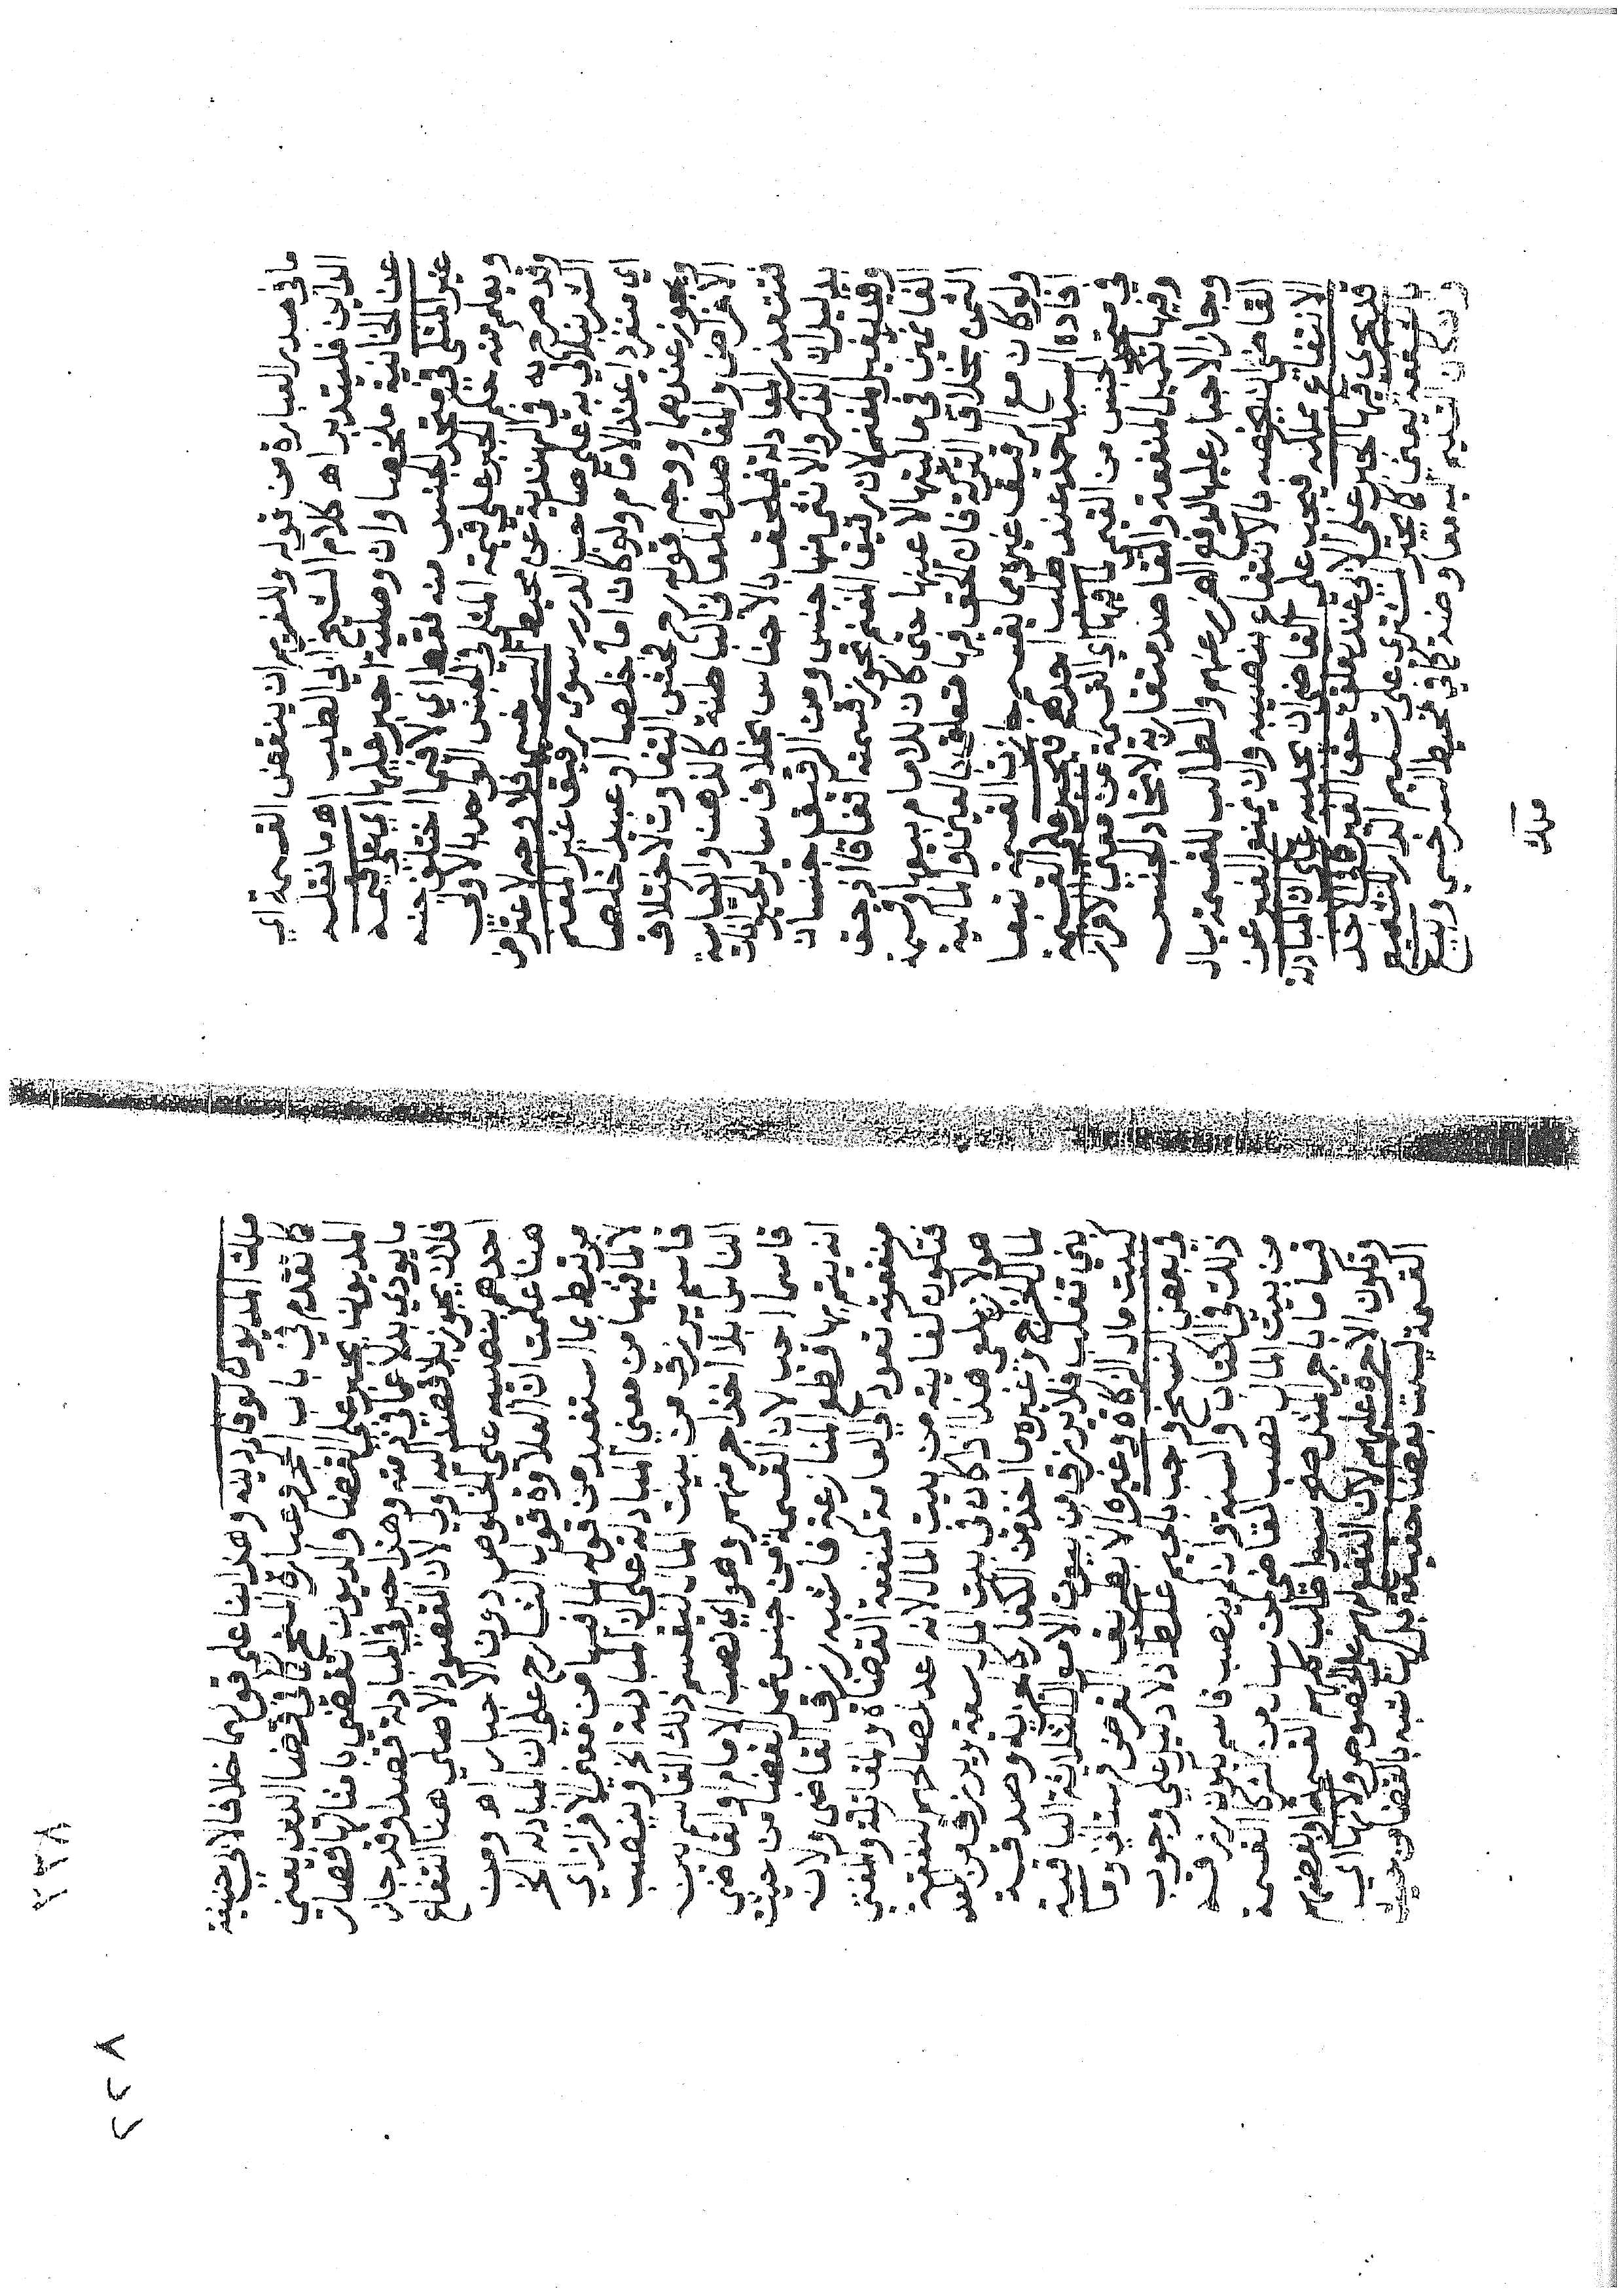 ما في صدر العبارة من قوله وللغير ان ينقض القسمة اي
الداين فليتدبر اه كلام الشيخ ابي الطيب اه ما نقله
عن الخانية ملخصا وان وصلية اجبر عليها اي على قسمة
غير المثلي في متحد الجنس منه فقط اي لا فيما اختلف جنسه
ويعلم منه حكم الجبر على قسمة المثلي في الجنس الواحد بالاولى
وقد صرح به في الهندية عن محيط السرخسي فلا وجه لاعتراض
الشرنبلالي به على صاحب الدرر سوى رقيق غير المغنم
اي منفردا عند الامام ولو كان اما خلصا او عبيدا خلصا
ويجوز عندهما ووجه قوله رح فحش التفاوت لاختلاف
الاغراض والمقاصد والمعاني الباطنة كالذهن والكياسة
فتتعذر المعادلة فيلحق بالاجناس بخلاف سائر الحيوانات
بدليل ان الذكر والانثى منها جنس ومن الرقيق جنسان
وقيد بغير المغنم لان رقيق المغنم تجوز قسمته اتفاقا اذ حق
الغانمين في ماليتها لا عينها حتى كان للامام بيعها وقسمة
الثمن بخلاف التركة فان الحق فيها تعلق بالعين والمالية
ولو كان مع الرقيق غيره مما يقسم جازت القسمة تبعا
افاده السيد احمد عند طلب احدهم فيجبر على القسمة
في متحد الجنس من القيمي لما فيها اي القسمة من معنى الافراز
وفيها تكميل المنفعة والمقاصد متقاربة لاتحاد الجنس
وجاز الاجبار عليها لدفع الضرر عنهم والطالب للقسمة يسال
القاضي ان يخصه بالانتفاع بنصيبه وان يمنع الغير عن
الانتفاع بملكه فيجب على القاضي ان يجيبه على ان المبادلة
قد يجري فيها الجبر على الابي عند تعلق حق الغير كما في الاخذ
بالشفعة يعني كما يجبر المشتري على تسليم الدار للشفيع
وان كان التسليم اليه معاوضة كما في محيط السرخسي وبيع
ملك
ملك المديون لوفا دينه وهذا بنا على قولهما خلافا لابي حنيفة
كما تقدم في باب الحجر وعبارة المنح كما في قضا الدين يعني
المديون يجبر على القضا والديون تقضى بامثالها فصار
ما يودي بدلا عما في ذمته وهذا جبر في المبادلة قصدا وقد جاز
فلان يجوز بلا قصد اليه اولى لان المقصود الاصلي هنا انتفاع
احدهم بنصيبه على الخلوص دون الاجبار اه ومن
هنا علمت ان العلاوة قول الشارح على ان المبادلة الخ
مرتبط بما استفيد من قوله لما فيها من معنى الافراز اي
لا لما فيها من معنى المبادلة على ان المبادلة الخ وينصب
قاسم يرزق من بيت المال ليقسم ذلك القاسم بين
الناس بلا اخذ اجر منهم وهو اي نصب الامام والقاضي
قاسما احب لان القسمة من جنس عمل القضا من حيث
انه يتم بها قطع المنازعة فاشبه رزق القاضي ولان
منفعته تعود الى العامة كمنفعة القضاة والمقاتلة والمفتي
فتكون كفايته من بيت المال لانه اعد لمصالحهم كنفقة
هولا زيلعي هذا اذا كان في بيت المال سعة يرزق من المعد
لمال الخراج وغيره مما اخذ من الكفار كالجزية وصدقة
بني تغلب فلا يرزق من بيوت الاموال الثلاثة الباقية
كبيت مال الزكاة وغيره الا بطريق القرض قهستاني وما
في بعض النسخ واجب بالميم غلط اذ لا دليل على وجوب
ذلك في الكتاب والسنة وان لم ينصب قاسم يكون رزقه
من بيت المال نصب القاضي من سال من الشركا القسمة
قساما باجر المثل صح سوا طلب كلهم القسمة او بعضهم
وتكون الاجرة عليهم لان النفع لهم على الخصوص ولانها اي
القسمة ليست بقضا حقيقة بل لها شبه بالقضا من حيث
٢٢٨